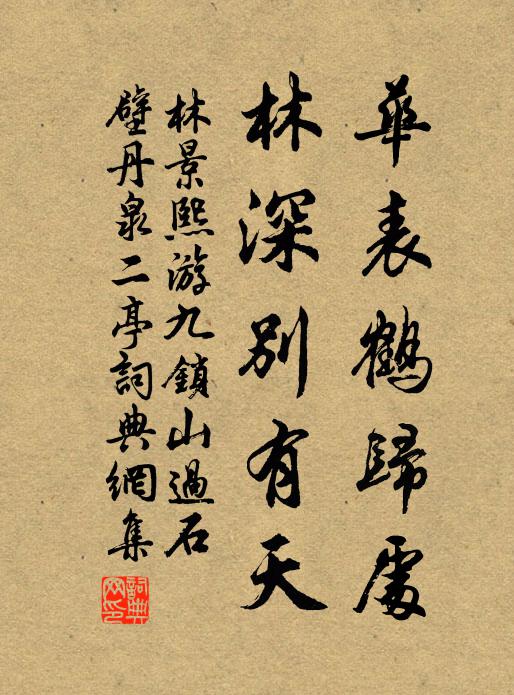 華表鶴歸處
林深別有天
林景熙游九鎖山過石
壁丹泉二亭詞典網集
詞典網印